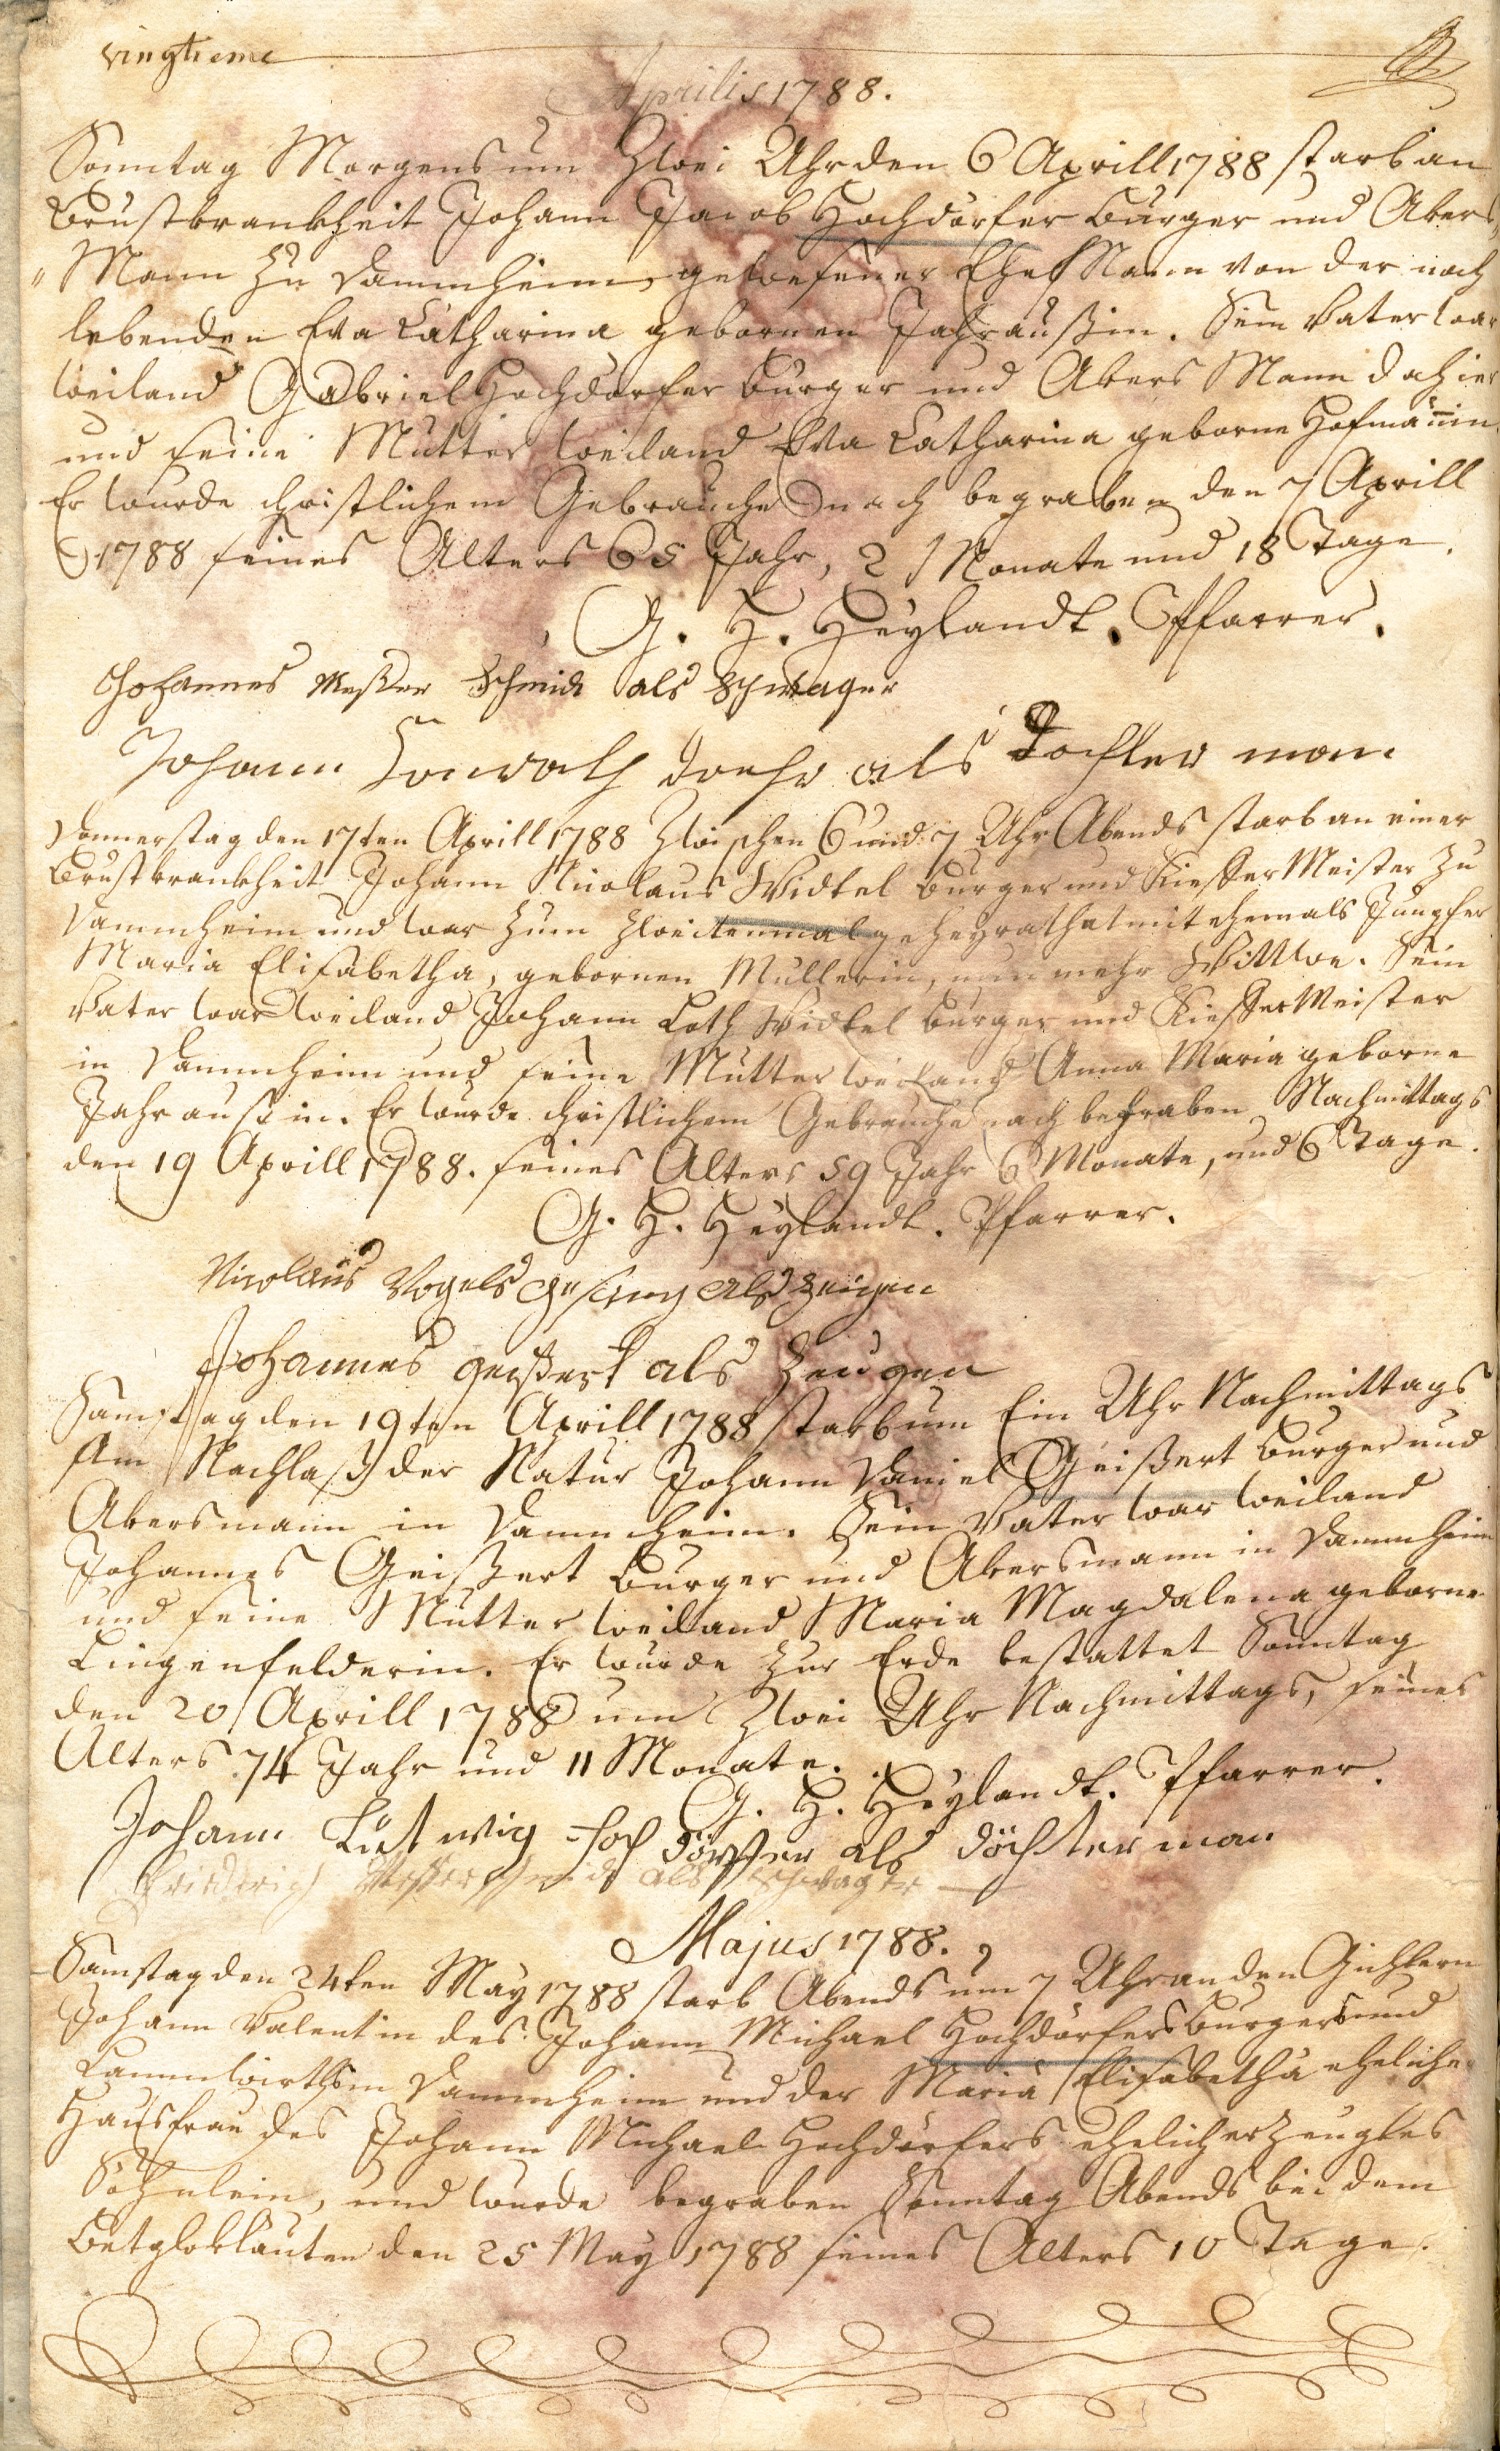 vingtieme
Aprilis 1788.
Sonntag Morgens um Zwei Uhr den 6 Aprill 1788 starb an
Brustkrankheit Johann Jacob Hochdörfer Burger und Akers„
„Mann zu Dammheim, gewesener Ehe Mann von der noch
lebenden Eva Catharina gebornen Jahraußin. Sein Vater war
weiland Gabriel Hochdörfer Burger und Akers Mann dahier
und seine Mutter weiland Eva Catharina geborne Hofmännin.
Er wurde christlichem Gebrauche nach begraben den 7 Aprill
1788 seines Alters 65 Jahr, 2 Monate und 18 Tage.
G. H. Heylandt. Pfarrer.
Johannes Meßer Schmidt als Schwager
Johann Conrath als Dochter man
Donnerstag den 17ten Aprill 1788 Zwischen 6 und 7 Uhr Abends starb an einer
Brustkrankheit Johann Nicolaus Widtel Burger und Kieffer Meister zu
Dammheim und war zum zweitenmal geheyrathet mit ehemals Jungfer
Maria Elisabetha, gebornen Mullerin, nunmehr Wittwe. Sein
Vater war weiland Johann Loth Widtel Burger und Kieffer Meister
in Dammheim und seine Mutter weiland Anna Maria geborne
Jahraußin. Er wurde christlichem Gebrauche nach begraben Nachmittags
den 19 Aprill 1788. seines Alters 59 Jahr 6 Monate, und 6 Tage.
G. H. Heylandt. Pfarrer.
Nicolaus Vogelsgesang als Zeugen
Johannes geißert als Zeugen
Samstag den 19ten Aprill 1788 starb um Ein Uhr Nachmittags
Am Nachlaß der Natur Johann Daniel Geißert Burger und
Akersmann in Dammheim. Sein Vater war weiland
Johannes Geißert Burger und Akersmann in Dammheim
und seine Mutter weiland Maria Magdalena geborne
Lingenfelderin. Er wurde zur Erde bestattet Sonntag
den 20 Aprill 1788 um Zwei Uhr Nachmittags, seines
Alters 74 Jahr und 11 Monate.
G. H. Heylandt. Pfarrer.
Johann Lutwig Hochdörffer als döchterman
Friderich Messerschmidt als Schwager
Majus 1788.
Samstag den 24ten May 1788 starb Abends um 7 Uhr an den Gichtern
Johann Valentin des Johann Michael Hochdörfers Burgers und
Lammwirths in Dammheim und der Maria Elisabetha eheliche
Hausfrau des Johann Michael Hochdörfers ehelich erzeugtes
Söhnlein, und wurde begraben Sonntag Abends bei dem
Betglokläuten den 25 May 1788 seines Alters 10 Tage.